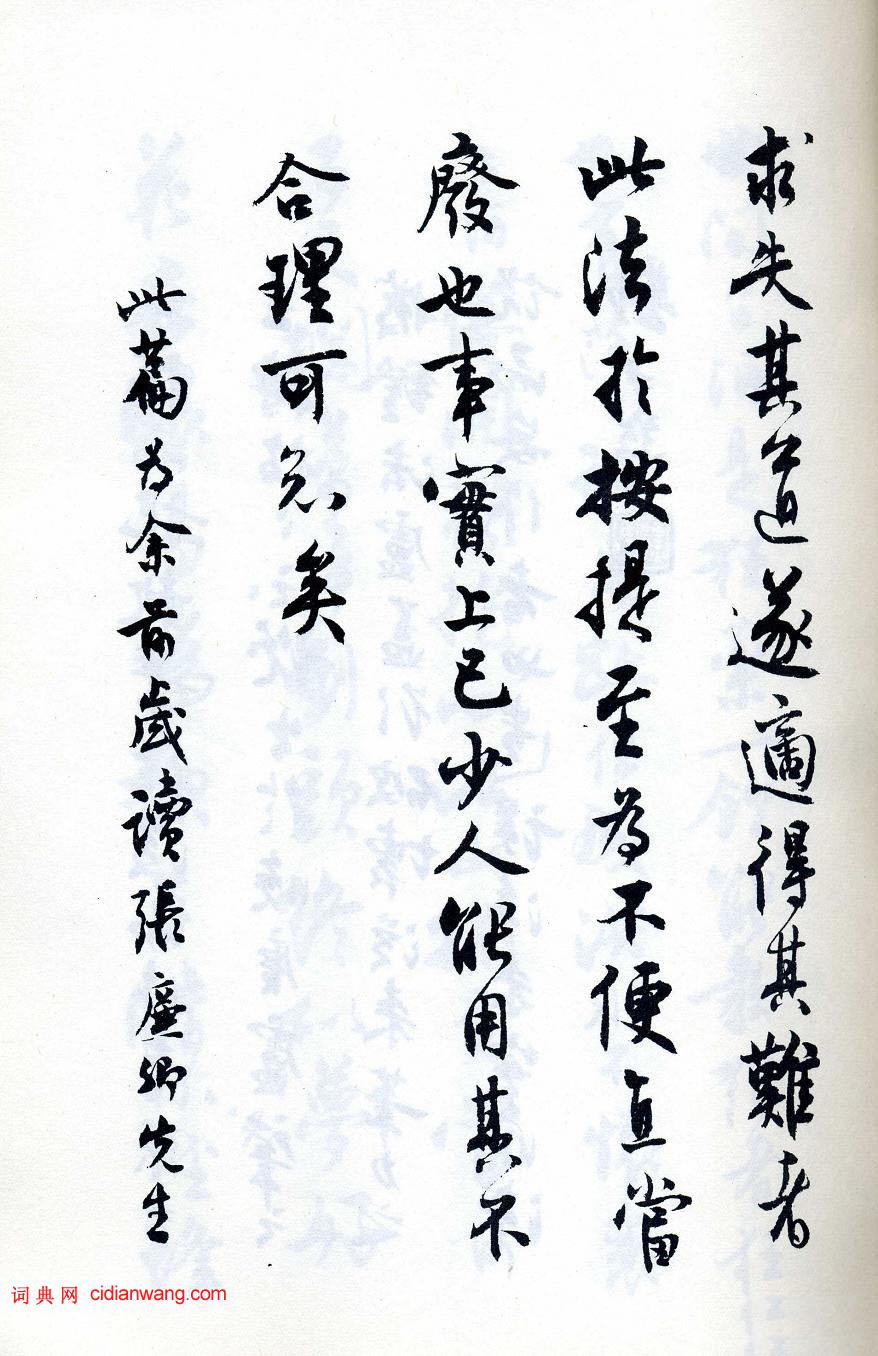 求失其道遂適得其難者
此法於按提至為不便直當
廢也事實上已少人能用其不
合理可見矣
此篇為余前歲讀張廉卿先生
词典网 cidianwang.com